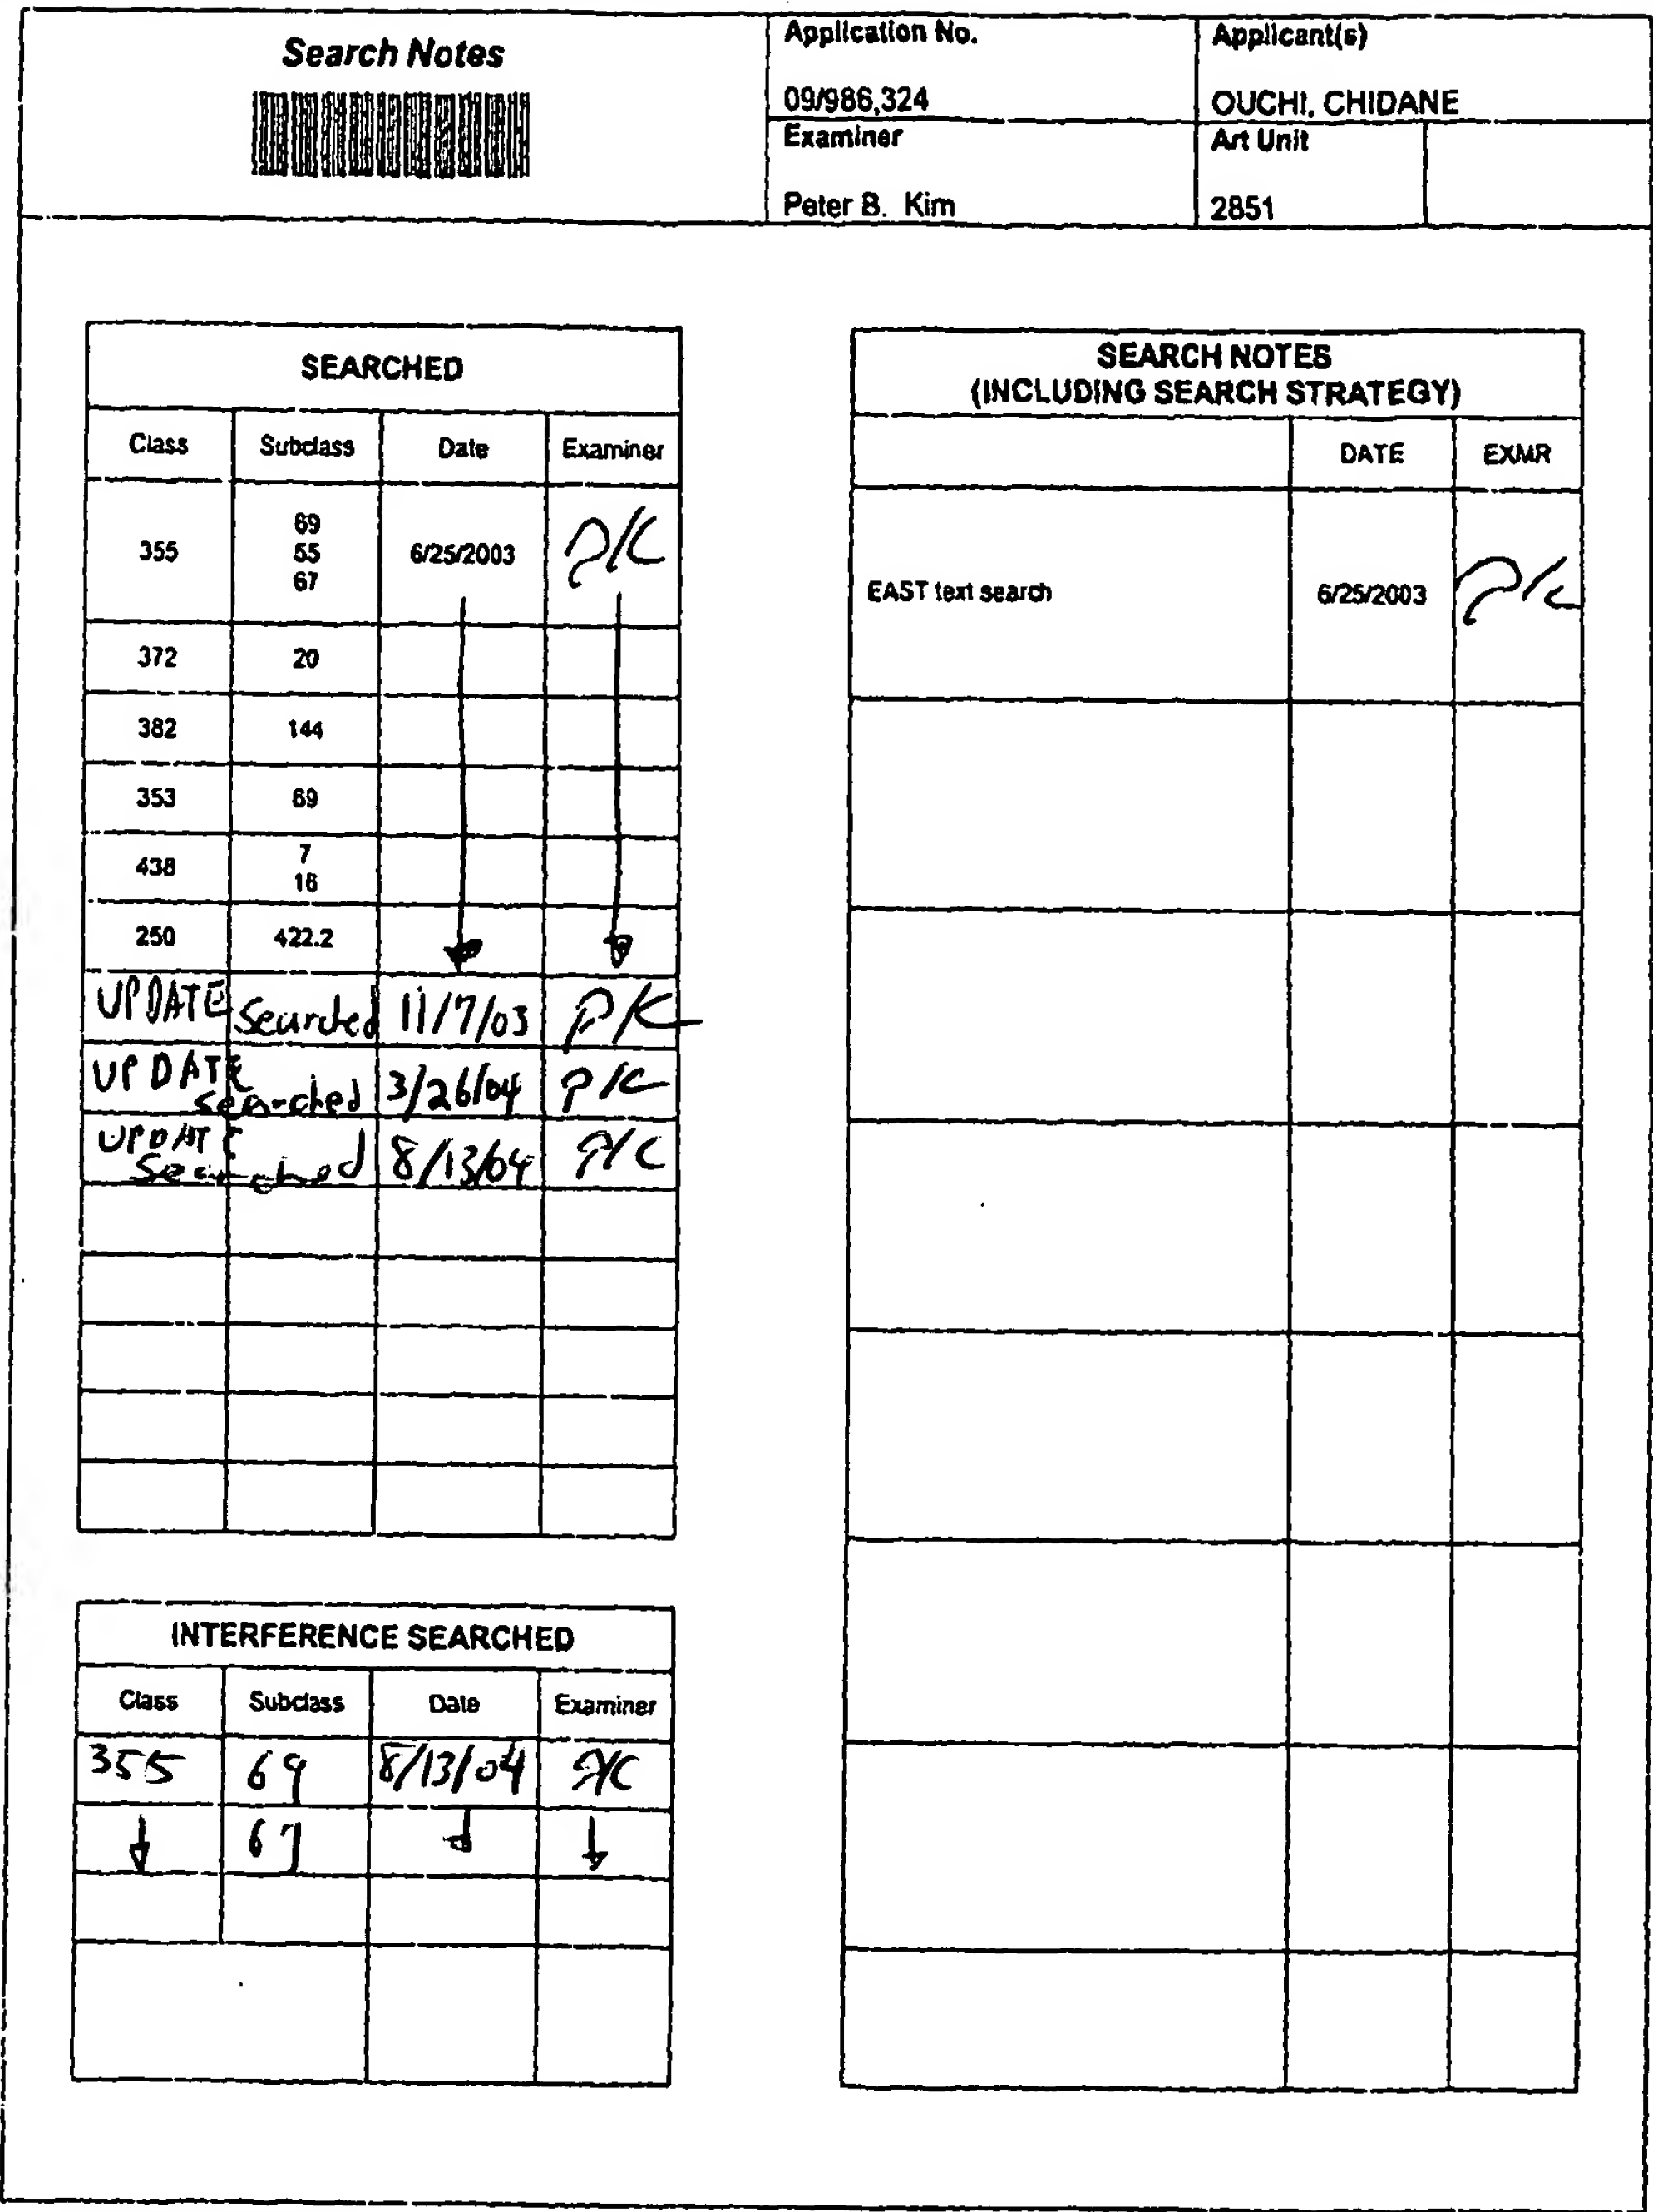 Search Notes
Application No.
09/986,324
Applicant(s)
OUCHI, CHIDANE
Examiner
Peter B. Kim
Art Unit
2851
SEARCHED
Class Subclass Date Examiner
355 69 55 67 6/25/2003 PK
372 20
382 144
353 69
438 7 16
250 422.2
UPDATE Searched 11/7/03 PK
UPDATE searched 3/26/04 PK
UPDATE searched 8/13/04 PK
INTERFERENCE SEARCHED
Class Subclass Date Examiner
355 69 8/13/04 PK
67
SEARCH NOTES
(INCLUDING SEARCH STRATEGY)
DATE EXMR
EAST text search 6/25/2003 PK